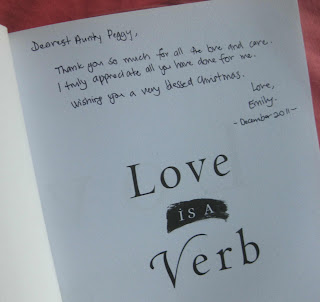 Dearest Aunty Peggy,
Thank you so much for all the love and care.
I truly appreciate all you have done for me.
Wishing you a very blessed Christmas.
Love,
Emily.
-December 2011-
Love
IS A
Verb